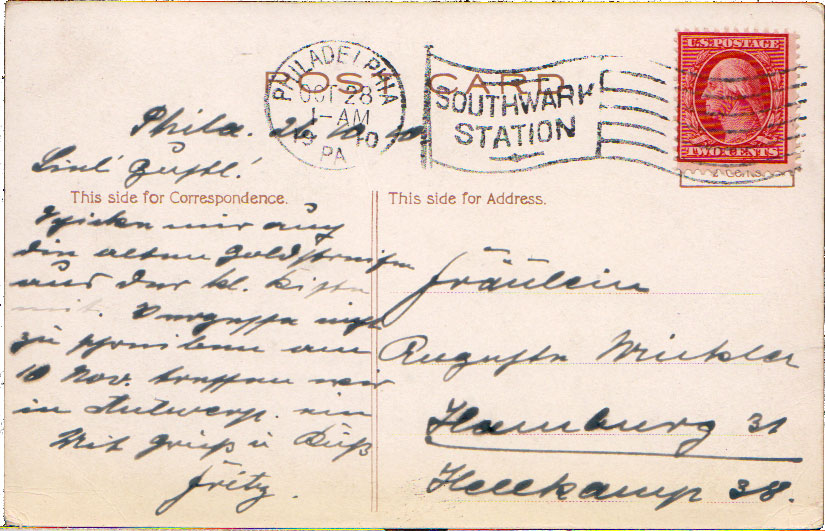 POST CARD
PHILADELPHIA
OCT 28
1-AM
1910
PA
SOUTHWARK
STATION
U.S. POSTAGE
TWO CENTS
2 Cents
Phila.
Lieb. Gustl!
This side for Correspondence.
Schicke mir auch
die alten Goldstreifen
aus der kl. Kiste
mit. Vergesse nicht
zu schreiben am
10 Nov. treffen wir
in Antwerp. ein
Mit Gruß u Kuß
Fritz.
This side for Address.
Fräulein
Auguste Winkler
Hamburg 31
Hellkamp 38.